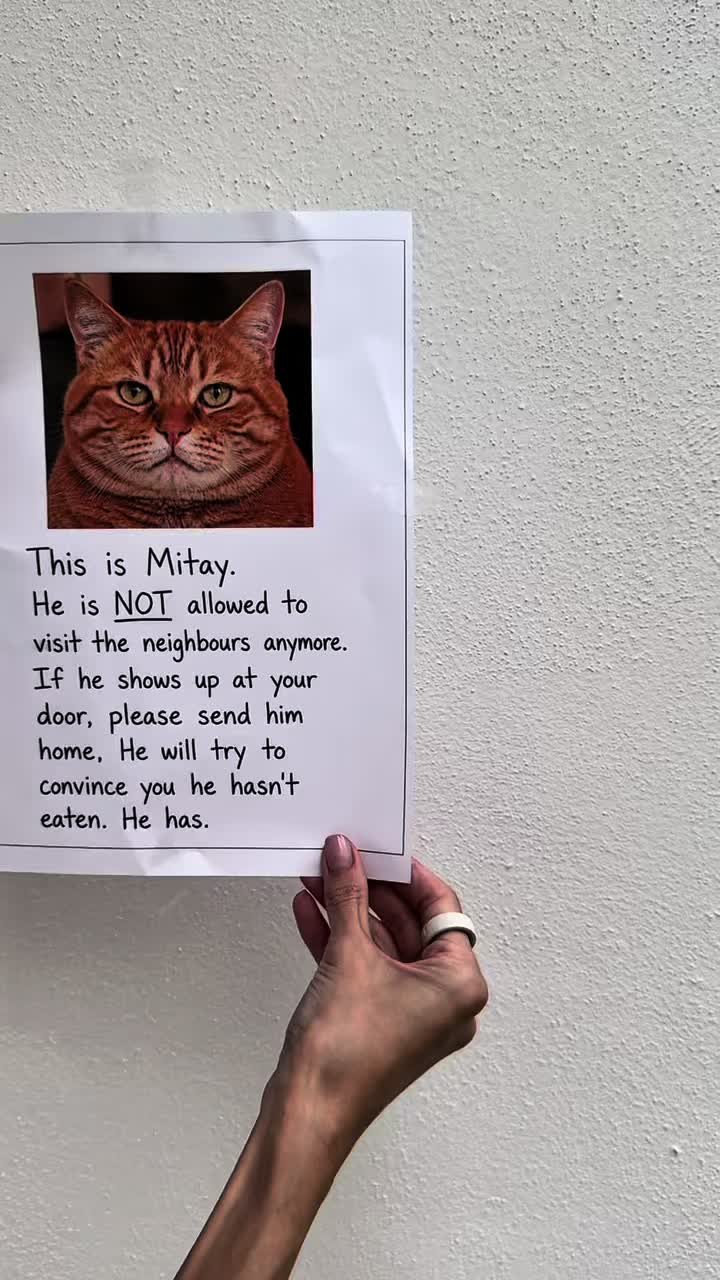 This is Mitay.
He is NOT allowed to
visit the neighbours anymore.
If he shows up at your
door, please send him
home, He will try to
convince you he hasn't
eaten. He has.